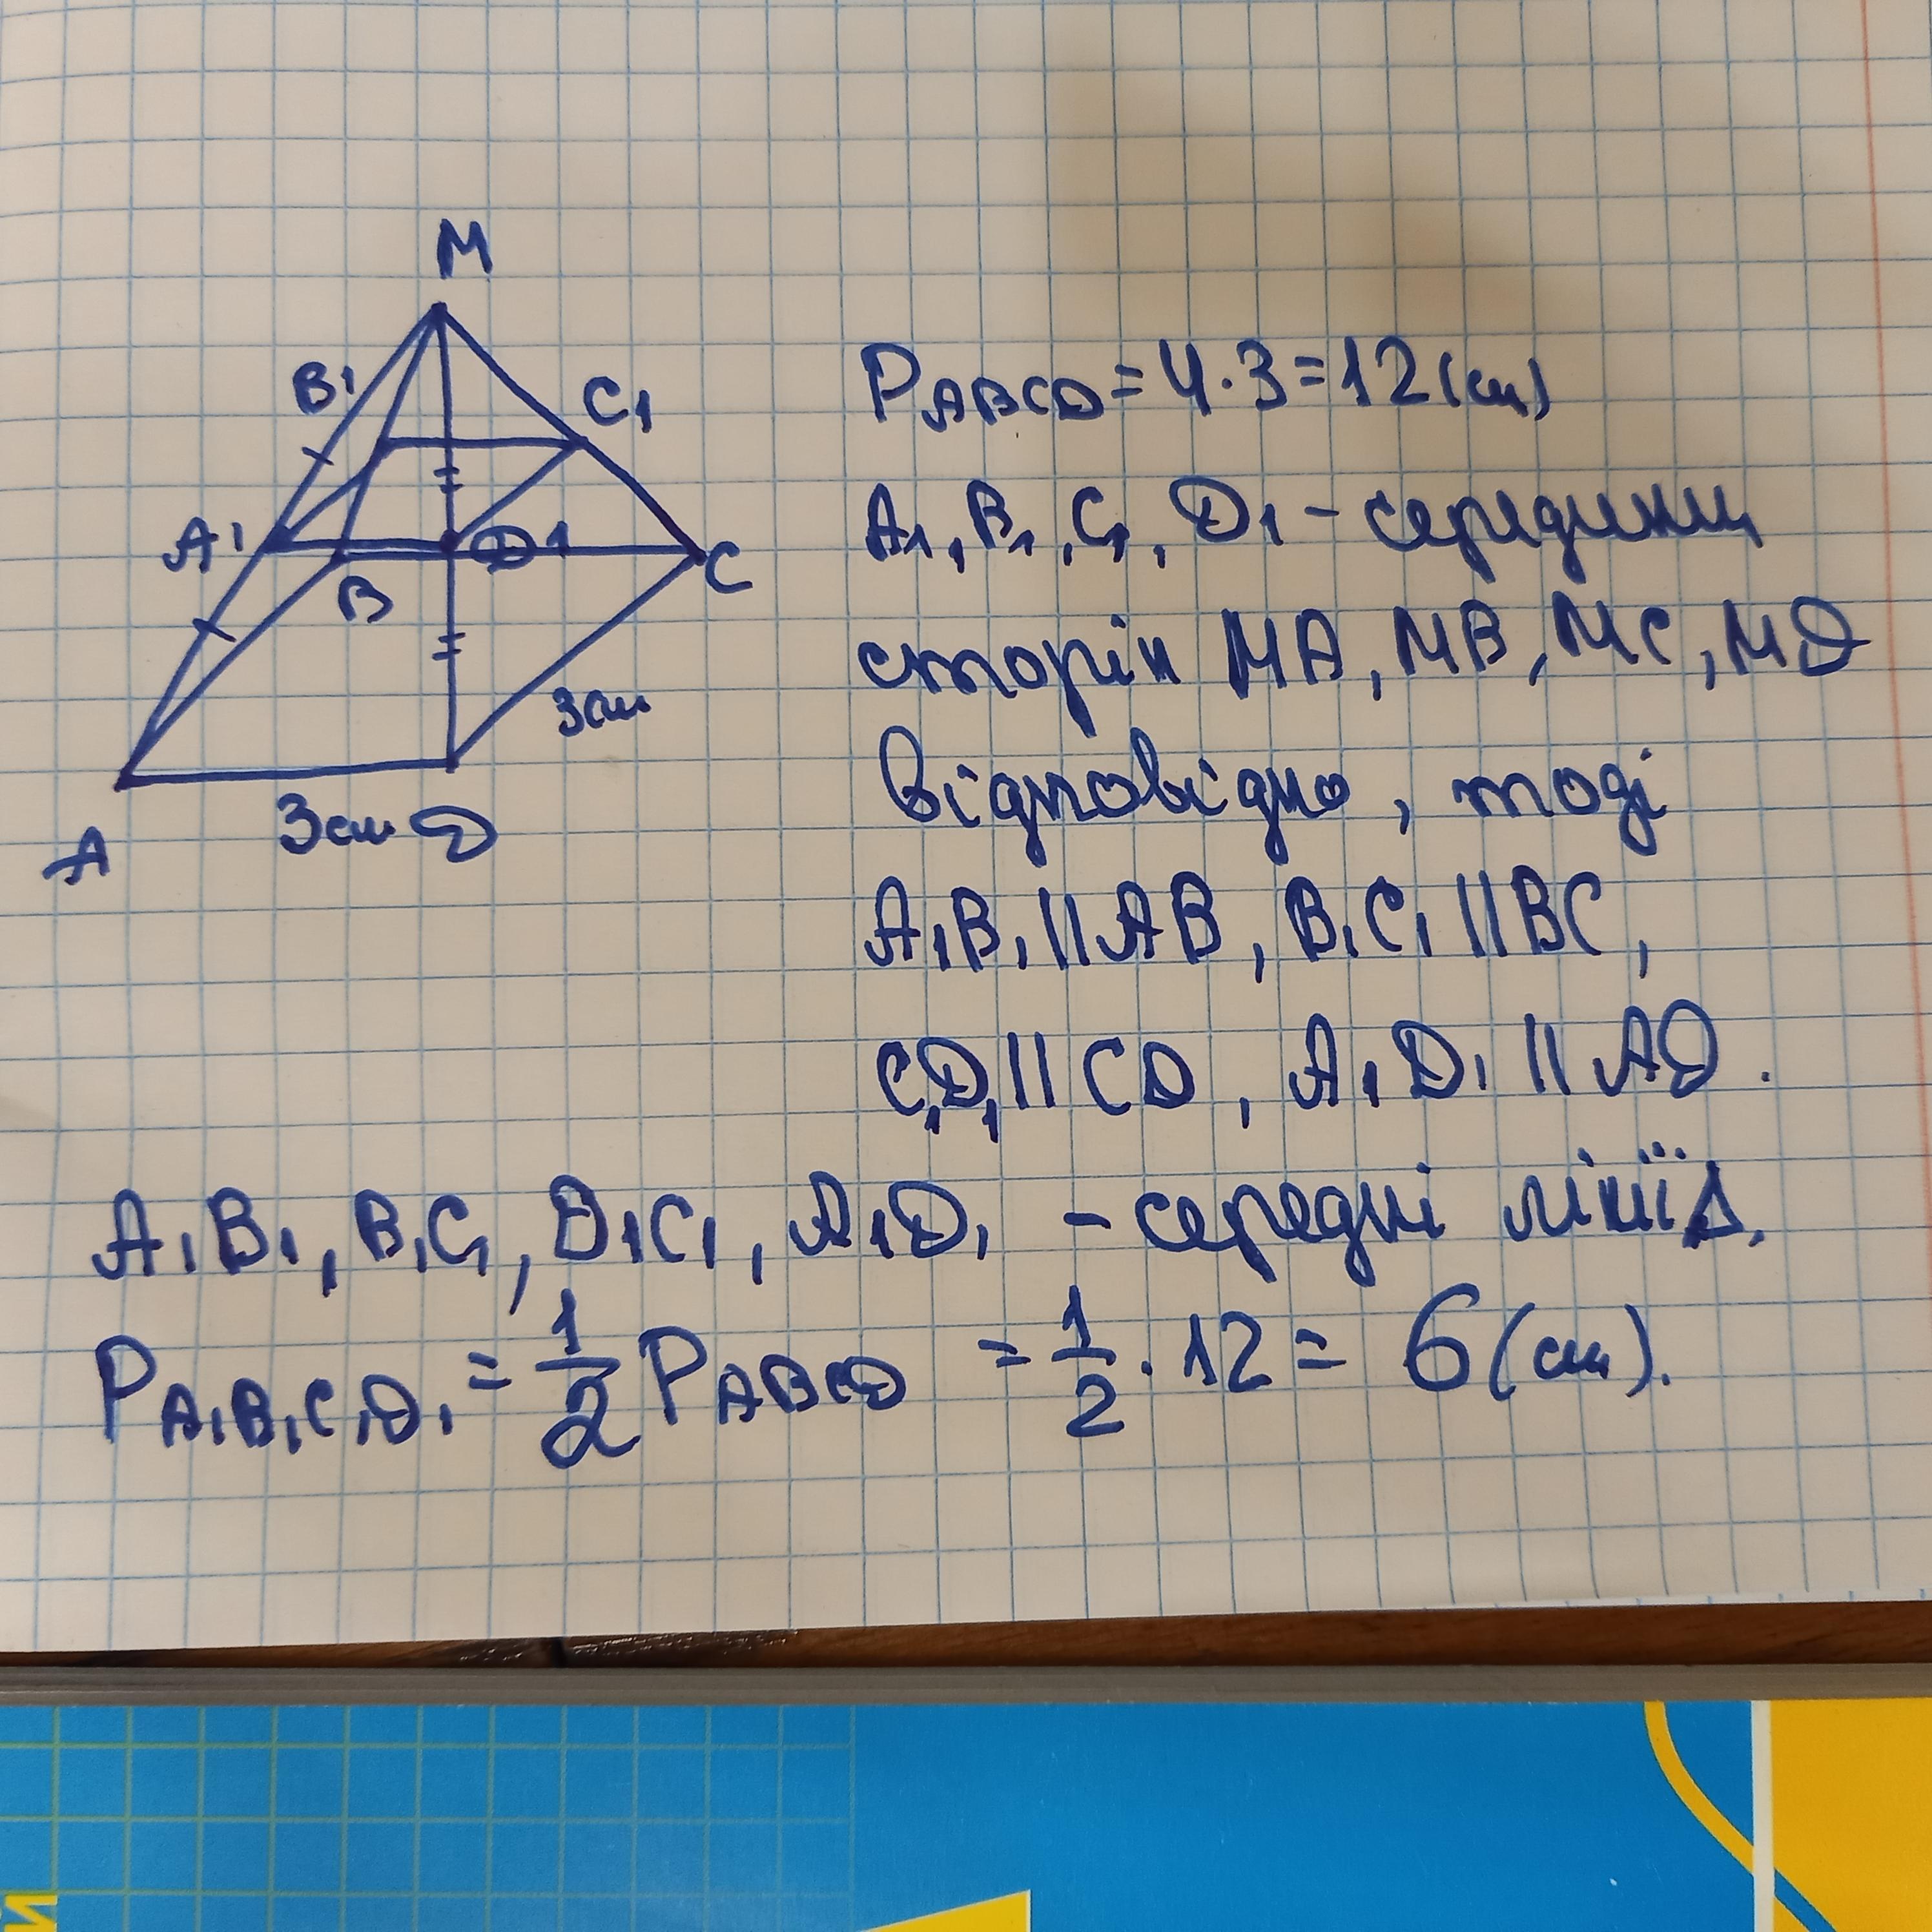 M
B1
C1
A1
D1
B
C
3см
3см
D
A
P ABCD = 4·3=12(см)
A1, B1, C1, D1 - середини
сторін MA, MB, MC, MD
відповідно, тоді
A1B1 || AB, B1C1 || BC,
C1D1 || CD, A1D1 || AD.
A1B1, B1C1, D1C1, A1D1 - середні лінії Δ.
P A1B1C1D1 = 1/2 P ABCD = 1/2 · 12 = 6 (см).
й